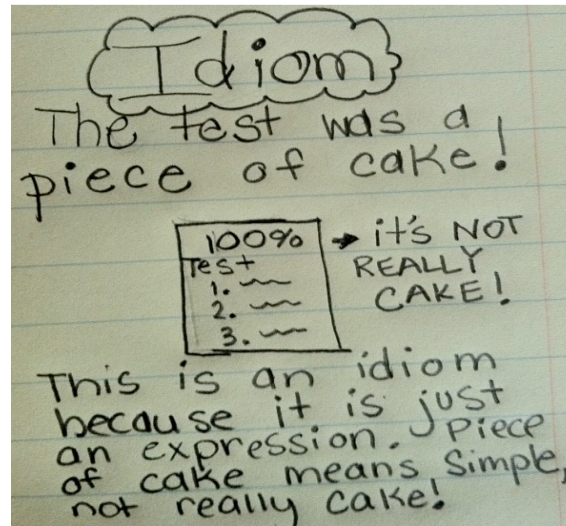 Idiom
The test was a
piece of cake!
100%
Test
1.
2.
3.
it's NOT
REALLY
CAKE!
This is an idiom
because it is just
an expression. Piece
of cake means simple,
not really cake!